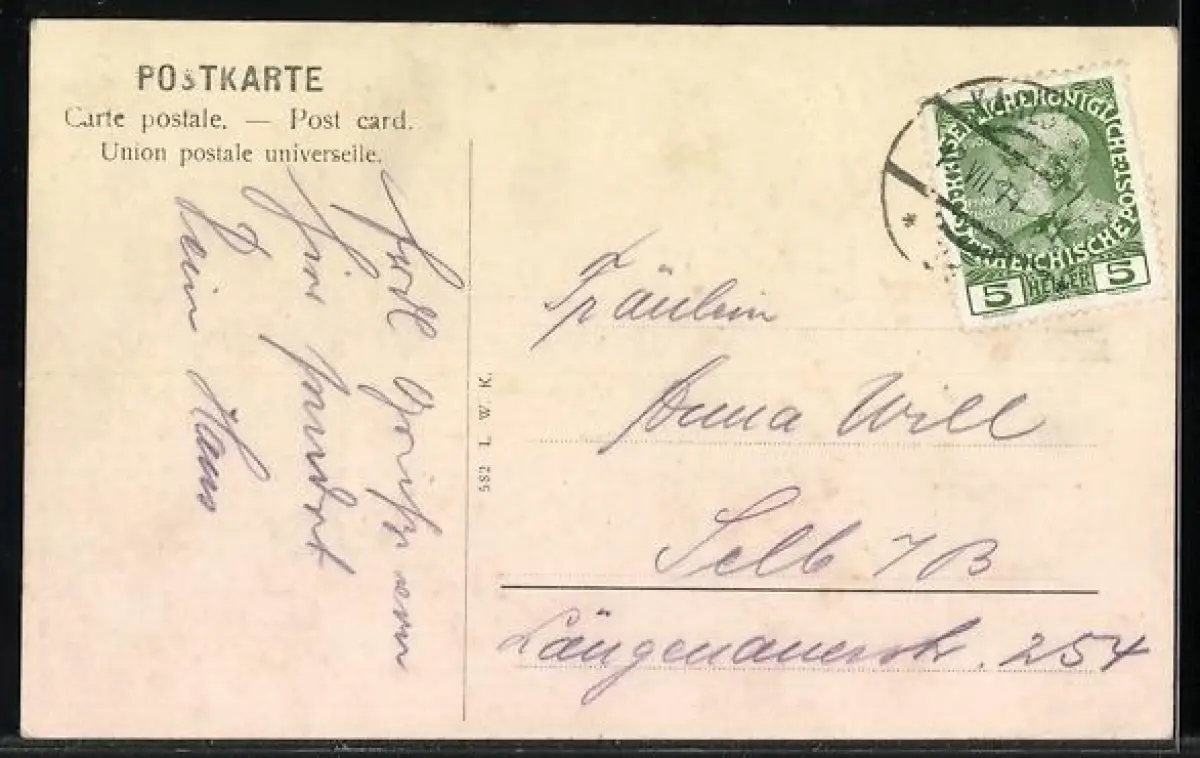 POSTKARTE
Carte postale. — Post card.
Union postale universelle.
Fräulein
Anna Will
Selb i/B
Längenauerstr. 254
582 I. W. K.
Hier sendet
Dein Hans
KAISERLICHE KÖNIGLICHE POST
ÖSTERREICHISCHE
5 HELLER 5